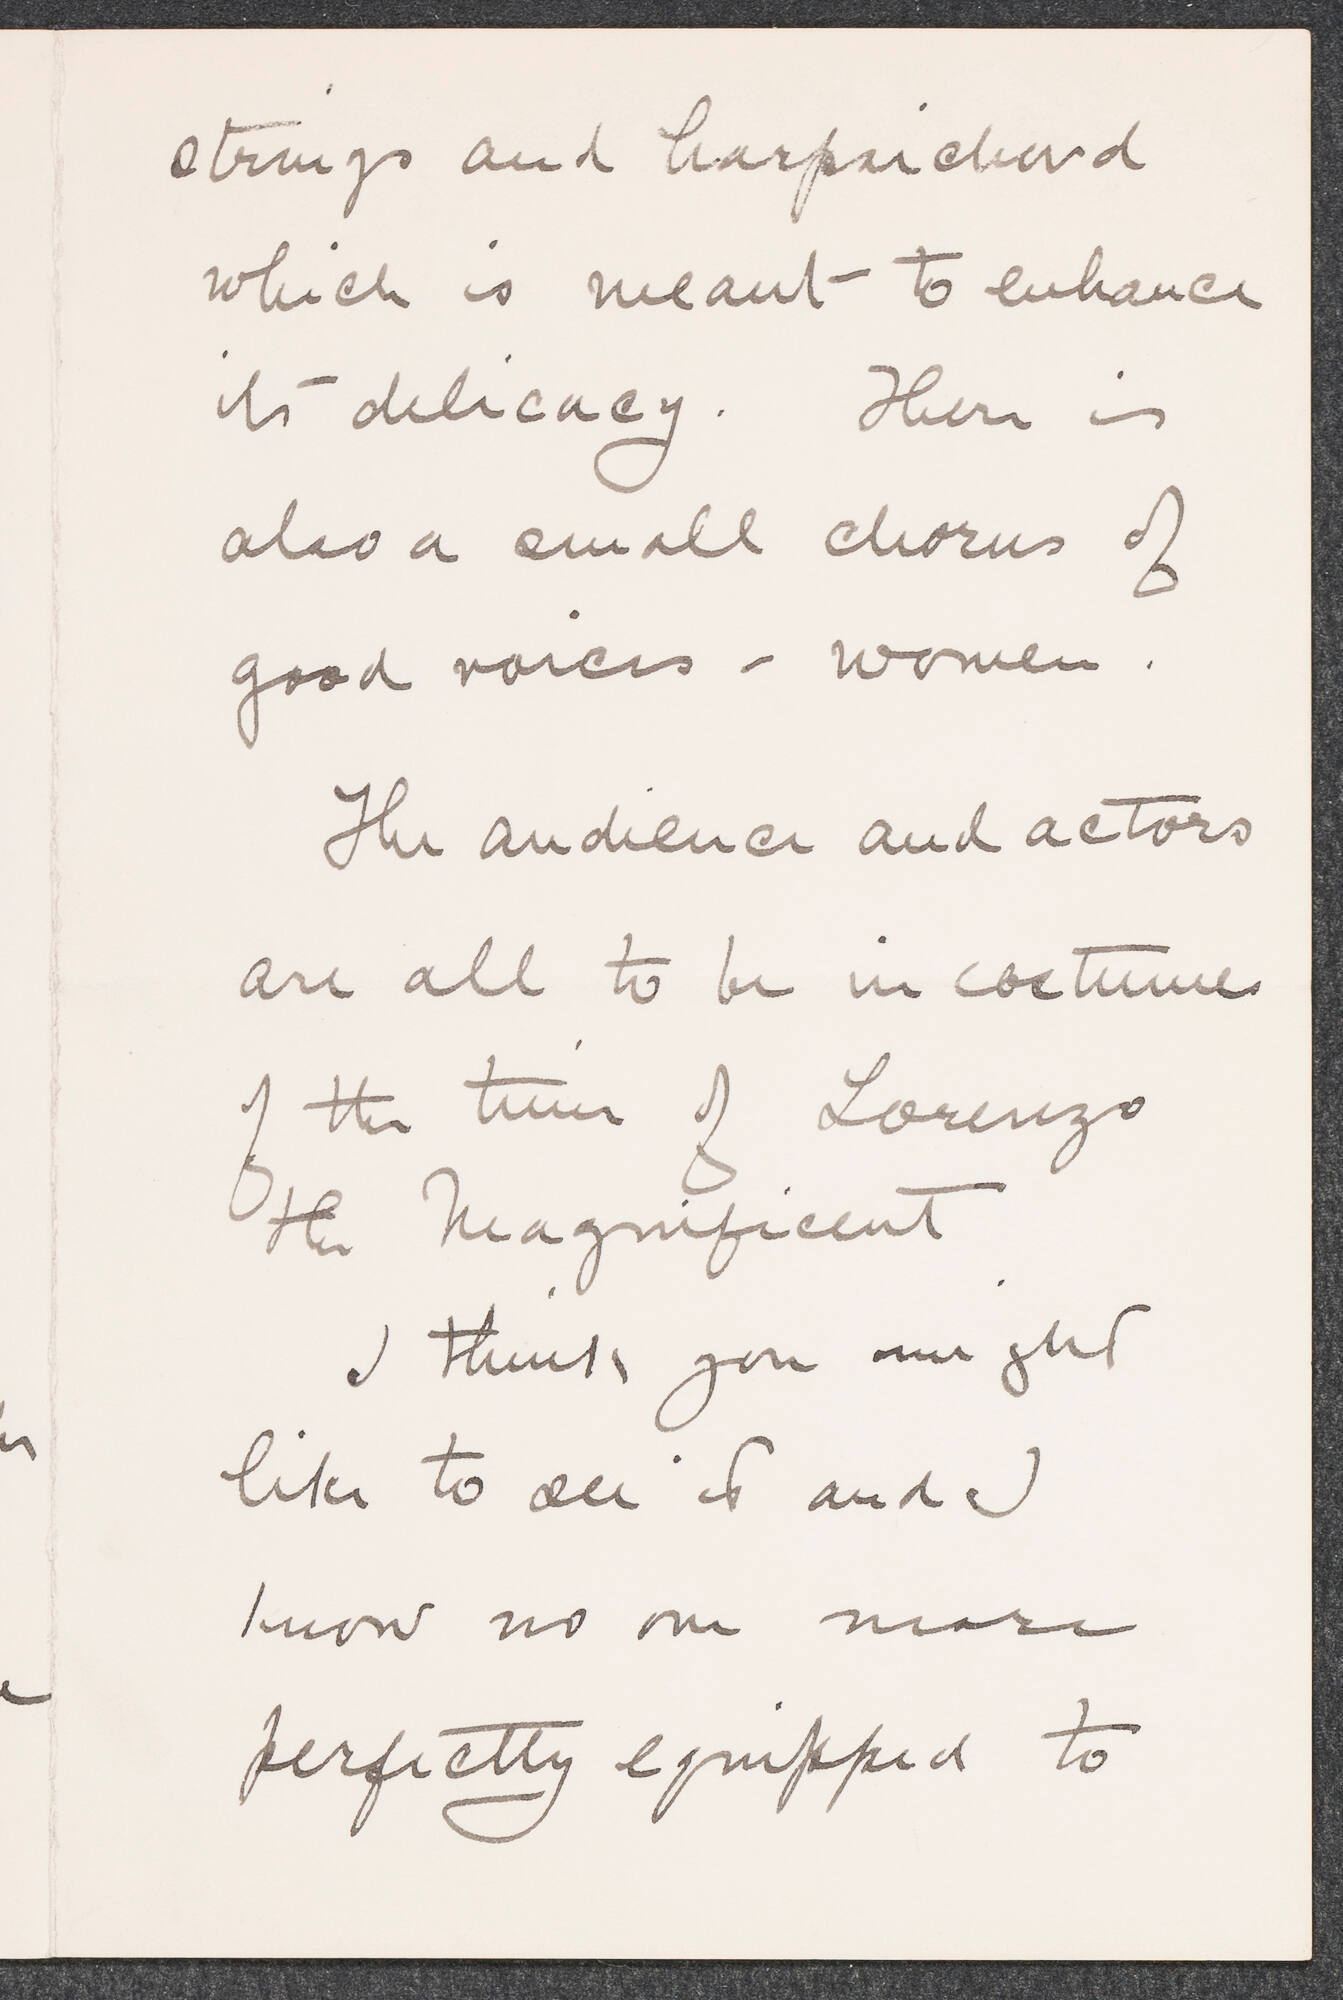 strings and harpsichord
which is meant to enhance
its delicacy. There is
also a small chorus of
good voices - women.
The audience and actors
are all to be in costumes
of the time of Lorenzo
the Magnificent
I think you might
like to see it and I
know no one more
perfectly equipped to